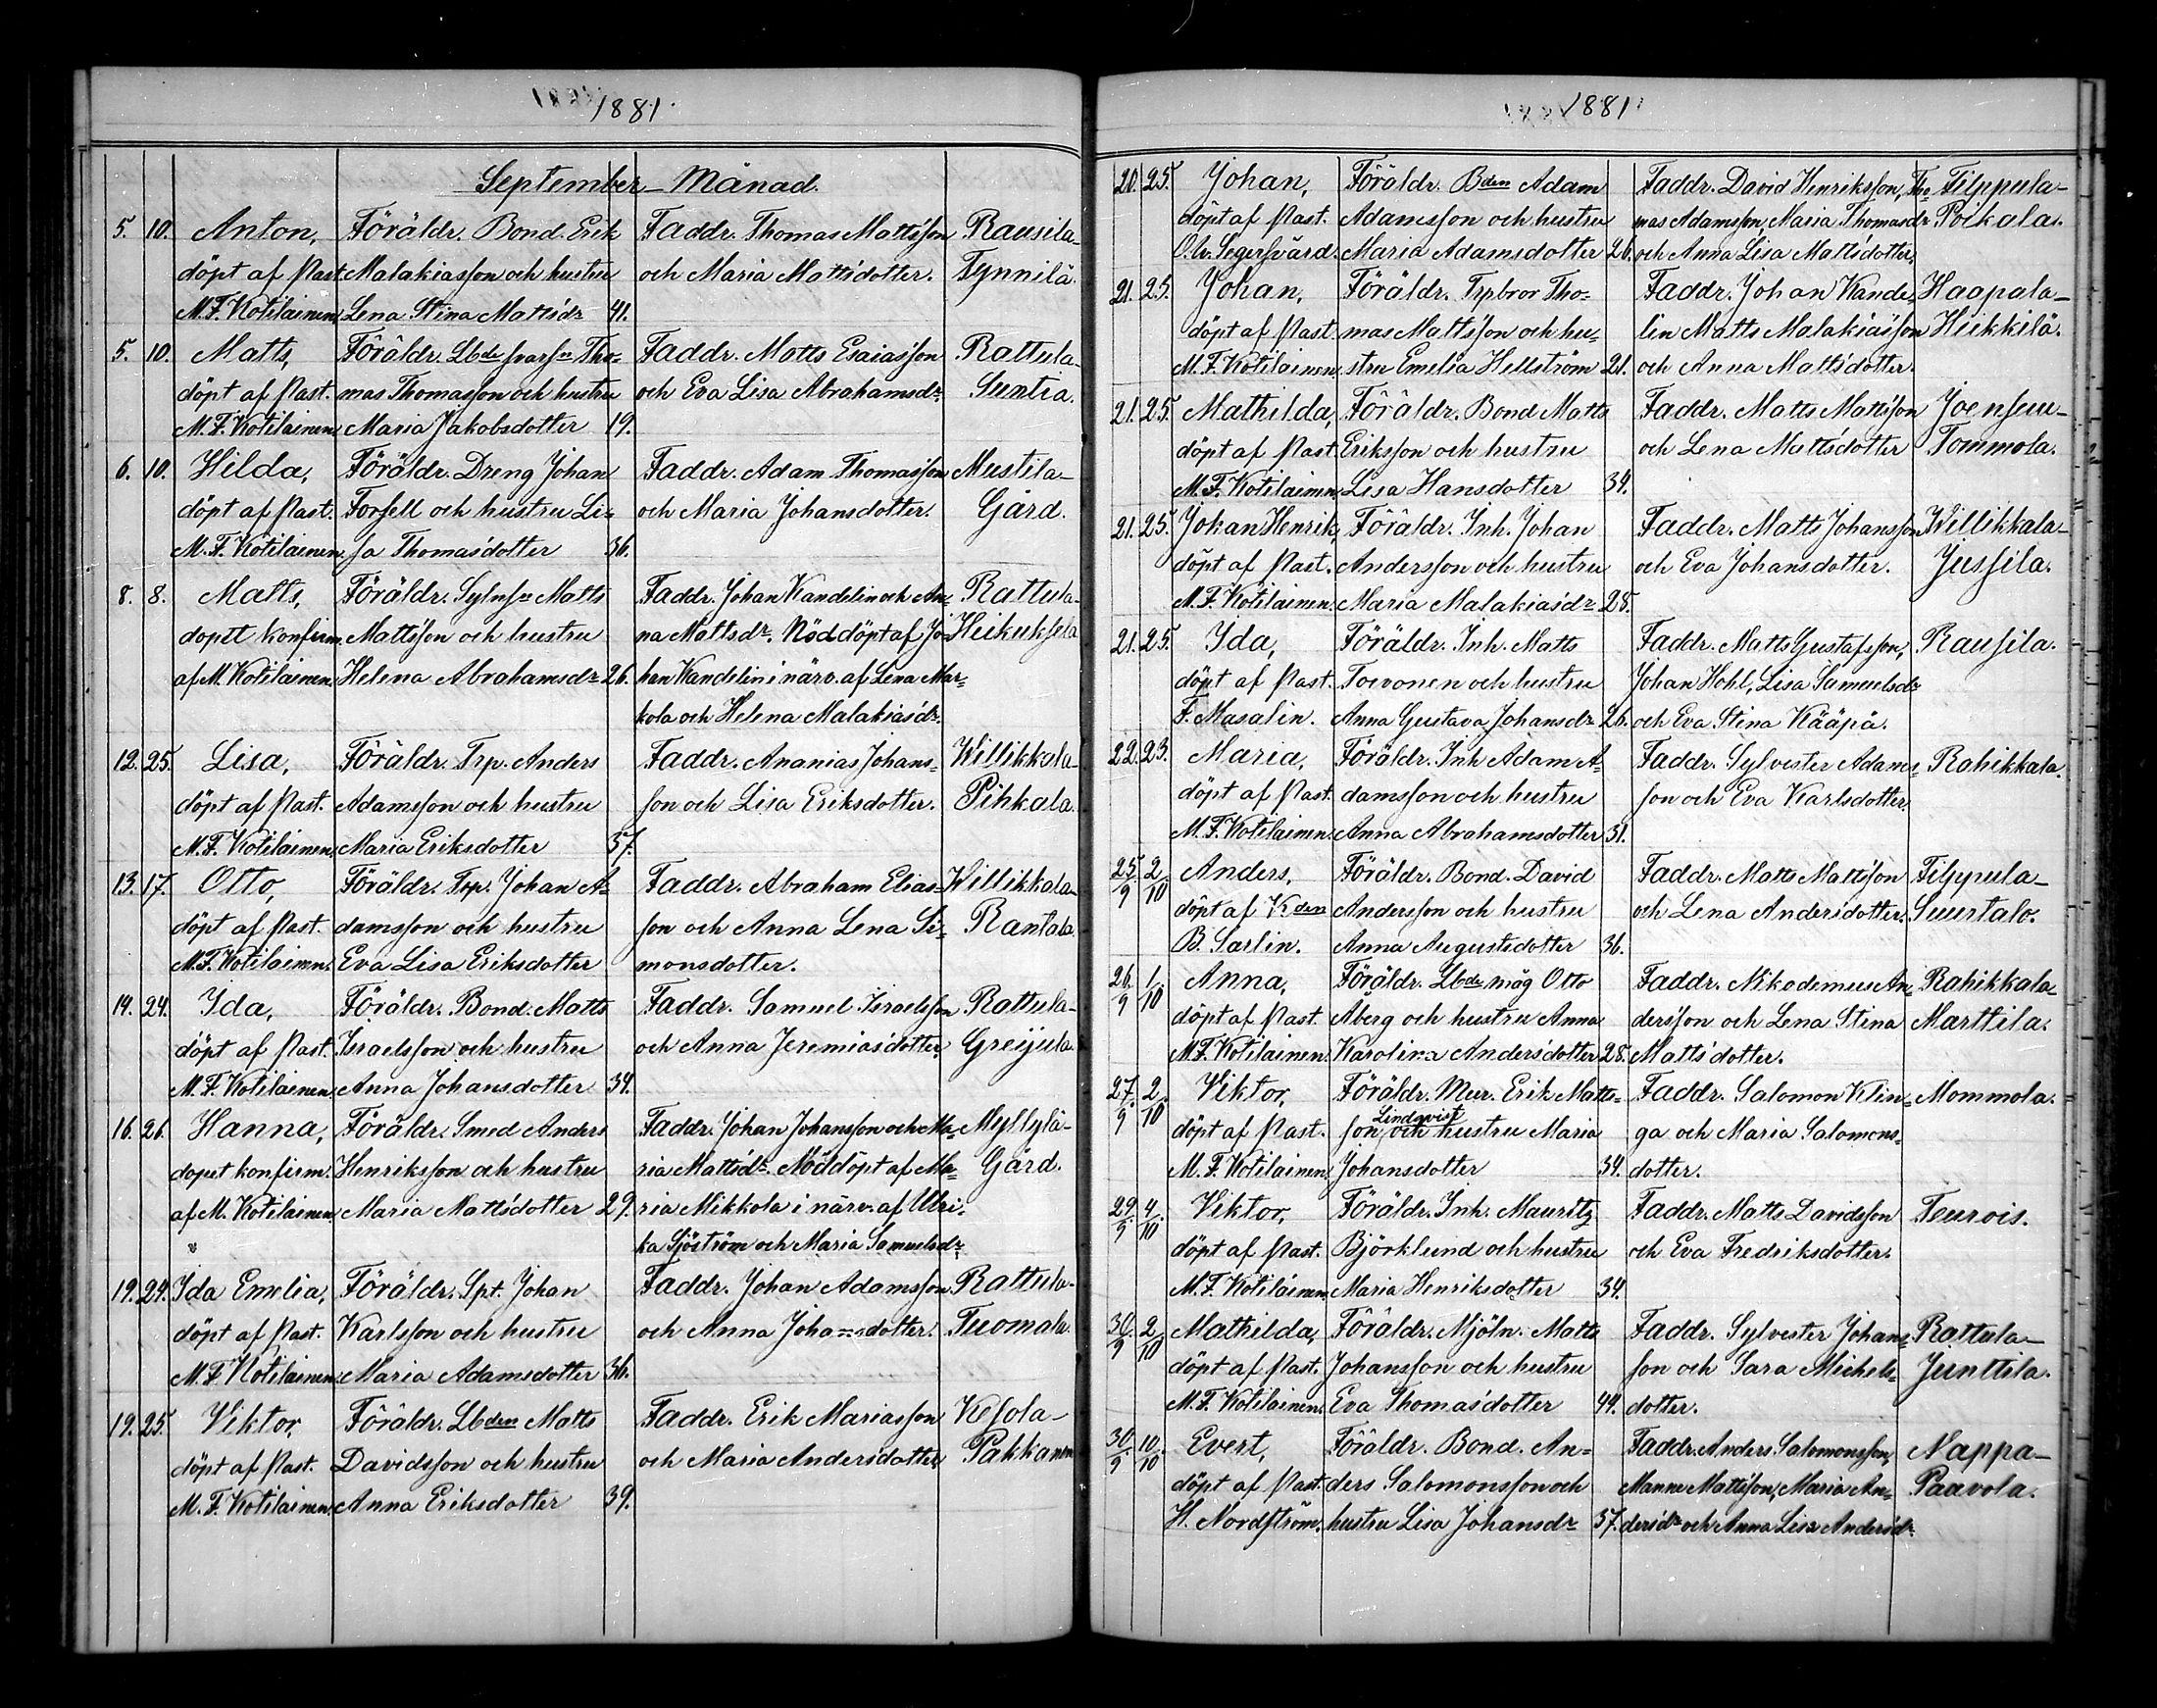 1881.
September Månad.
5. 10. Anton, Föräldr. Bond. Erik Faddr. Thomas Mattsson Rausila-
döpt af Past. Malakiasson och hustru och Maria Mattsdotter. Tynnilä.
M. F. Kotilainen, Lena Stina Mattsdr 41.
5. 10. Matts, Föräldr. Lbde svarsn Tho- Faddr. Matts Esaiasson Rattula-
döpt af Past. mas Thomasson och hustru och Eva Lisa Abrahamsdr. Suntia.
M. F. Kotilainen Maria Jakobsdotter 19.
6. 10. Hilda, Föräldr. Dreng Johan Faddr. Adam Thomasson Mustila-
döpt af Past. Forsell och hustru Li- och Maria Johansdotter. Gård.
M. F. Kotilainen. sa Thomasdotter 36.
8. 8. Matts, Föräldr. Sytnsn Matts Faddr. Johan Kandelin och An- Rattula-
doptt konfirm. Mattsson och hustru na Mattsdr. Nöddöpt af Jo- Heikuksela
af M. Kotilainen. Helena Abrahamsdr 26. han Kandelin i närv. af Lena Mar-
kola och Helena Malakiasdr.
12. 25. Lisa, Föräldr. Trp. Anders Faddr. Ananias Johans- Willikkala-
döpt af Past. Adamsson och hustru son och Lisa Eriksdotter. Pihkala.
M. F. Kotilainen. Maria Eriksdotter 37.
13. 17. Otto, Föräldr. Trp. Johan A- Faddr. Abraham Elias- Willikkala-
döpt af Past. damsson och hustru son och Anna Lena Si- Rantala.
M. F. Kotilainen. Eva Lisa Eriksdotter monsdotter.
14. 24. Ida, Föräldr. Bond. Matts Faddr. Samuel Israelsson Rattula-
döpt af Past. Israelsson och hustru och Anna Jeremiasdotter, Greijula.
M. F. Kotilainen. Anna Johansdotter 34.
16. 26. Hanna, Föräldr. Smed Anders Faddr. Johan Johansson och Ma- Myllylä-
döput konfirm. Henriksson och hustru ria Mattsdr. Nöddöpt af Ma- Gård.
af M. Kotilainen. Maria Mattsdotter 29. ria Mikkola i närv. af Ulri-
ka Sjöström och Maria Samuelsdr.
19. 24. Ida Emelia, Föräldr. Spt. Johan Faddr. Johan Adamsson Rattula-
döpt af Past. Karlsson och hustru och Anna Johansdotter. Tuomala.
M. F. Kotilainen. Maria Adamsdotter 36.
19. 25. Viktor, Föräldr. Lbden Matts Faddr. Erik Mariasson Kesola-
döpt af Past. Davidsson och hustru och Maria Andersdotter,
M. F. Kotilainen. Anna Eriksdotter 39.
1881
20. 25. Johan, Föräldr. Bden Adam Faddr. David Henriksson, Tho- Filppula-
döpt af Past. Adamsson och hustru mas Adamsson, Maria Thomasdr Poikala.
Segersvärd. Maria Adamsdotter 26. och Anna Lisa Mattsdotter,
21. 25. Johan, Föräldr. Trpbror Tho- Faddr. Johan Kande- Haapala-
döpt af Past. mas Mattsson och hu- lin Matts Malakiasson Heikkilä.
M. F. Kotilainen. stru Emelia Hellström 21. och Anna Mattsdotter.
21. 25. Mathilda, Föräldr. Bond Matts Faddr. Matts Mattsson Joensuu-
döpt af Past. Eriksson och hustru och Lena Mattsdotter Tommola.
M. F. Kotilainen. Lisa Hansdotter 34.
21. 25. Johan Henrik, Föräldr. Inh. Johan Faddr. Matts Johansson Willikkala-
döpt af Past. Andersson och hustru och Eva Johansdotter. Jussila.
M. F. Kotilainen. Maria Malakiasdr 28.
21. 25. Ida, Föräldr. Inh. Matts Faddr. Matts Gustafsson, Rausila.
döpt af Past. Toivonen och hustru Johan Hohl, Lisa Samuelsdr
F. Masalin. Anna Gustava Johansdr 26. och Eva Stina Kääpä.
22. 23. Maria, Föräldr. Inh Adam A- Faddr. Sylvester Adams- Rahikkala.
döpt af Past. damsson och hustru son och Eva Karlsdotter.
M. F. Kotilainen. Anna Abrahamsdotter 31.
25/9 2/10 Anders, Föräldr. Bond. David Faddr. Matts Mattsson Filppula-
döpt af Kden Andersson och hustru och Lena Andersdotter. Suurtalo.
B. Sarlin. Anna Augustsdotter 36.
26/9 1/10 Anna, Föräldr. Lbde måg Otto Faddr. Nikodemus An- Rahikkala-
döpt af Past. Åberg och hustru Anna dersson och Lena Stina Marttila.
M. F. Kotilainen. Karolina Andersdotter 28. Mattsdotter.
27/9 2/10 Viktor, Föräldr. Mur. Erik Matts- Faddr. Salomon Klin- Mommola.
Lindqvist
döpt af Past. son och hustru Maria ga och Maria Salomons-
M. F. Kotilainen. Johansdotter 34. dotter.
29/9 4/10 Viktor, Föräldr. Inh. Mauritz Faddr. Matts Davidsson Teurois.
döpt af Past. Björklund och hustru och Eva Fredriksdotter.
M. F. Kotilainen. Maria Henriksdotter 34.
30/9 2/10 Mathilda, Föräldr. Mjöln. Matts Faddr. Sylvester Johans- Rattula-
döpt af Past. Johansson och hustru son och Sara Michels- Junttila.
M. F. Kotilainen. Eva Thomasdotter 44. dotter.
30/9 10/10 Evert, Föräldr. Bond. An- Faddr. Anders Salomonsson, Nappa-
döpt af Past. ders Salomonsson och Manne Mattsson, Maria An- Paavola.
H. Nordström. hustru Lisa Johansdr 37. dersdr och Anna Lisa Andersdr.